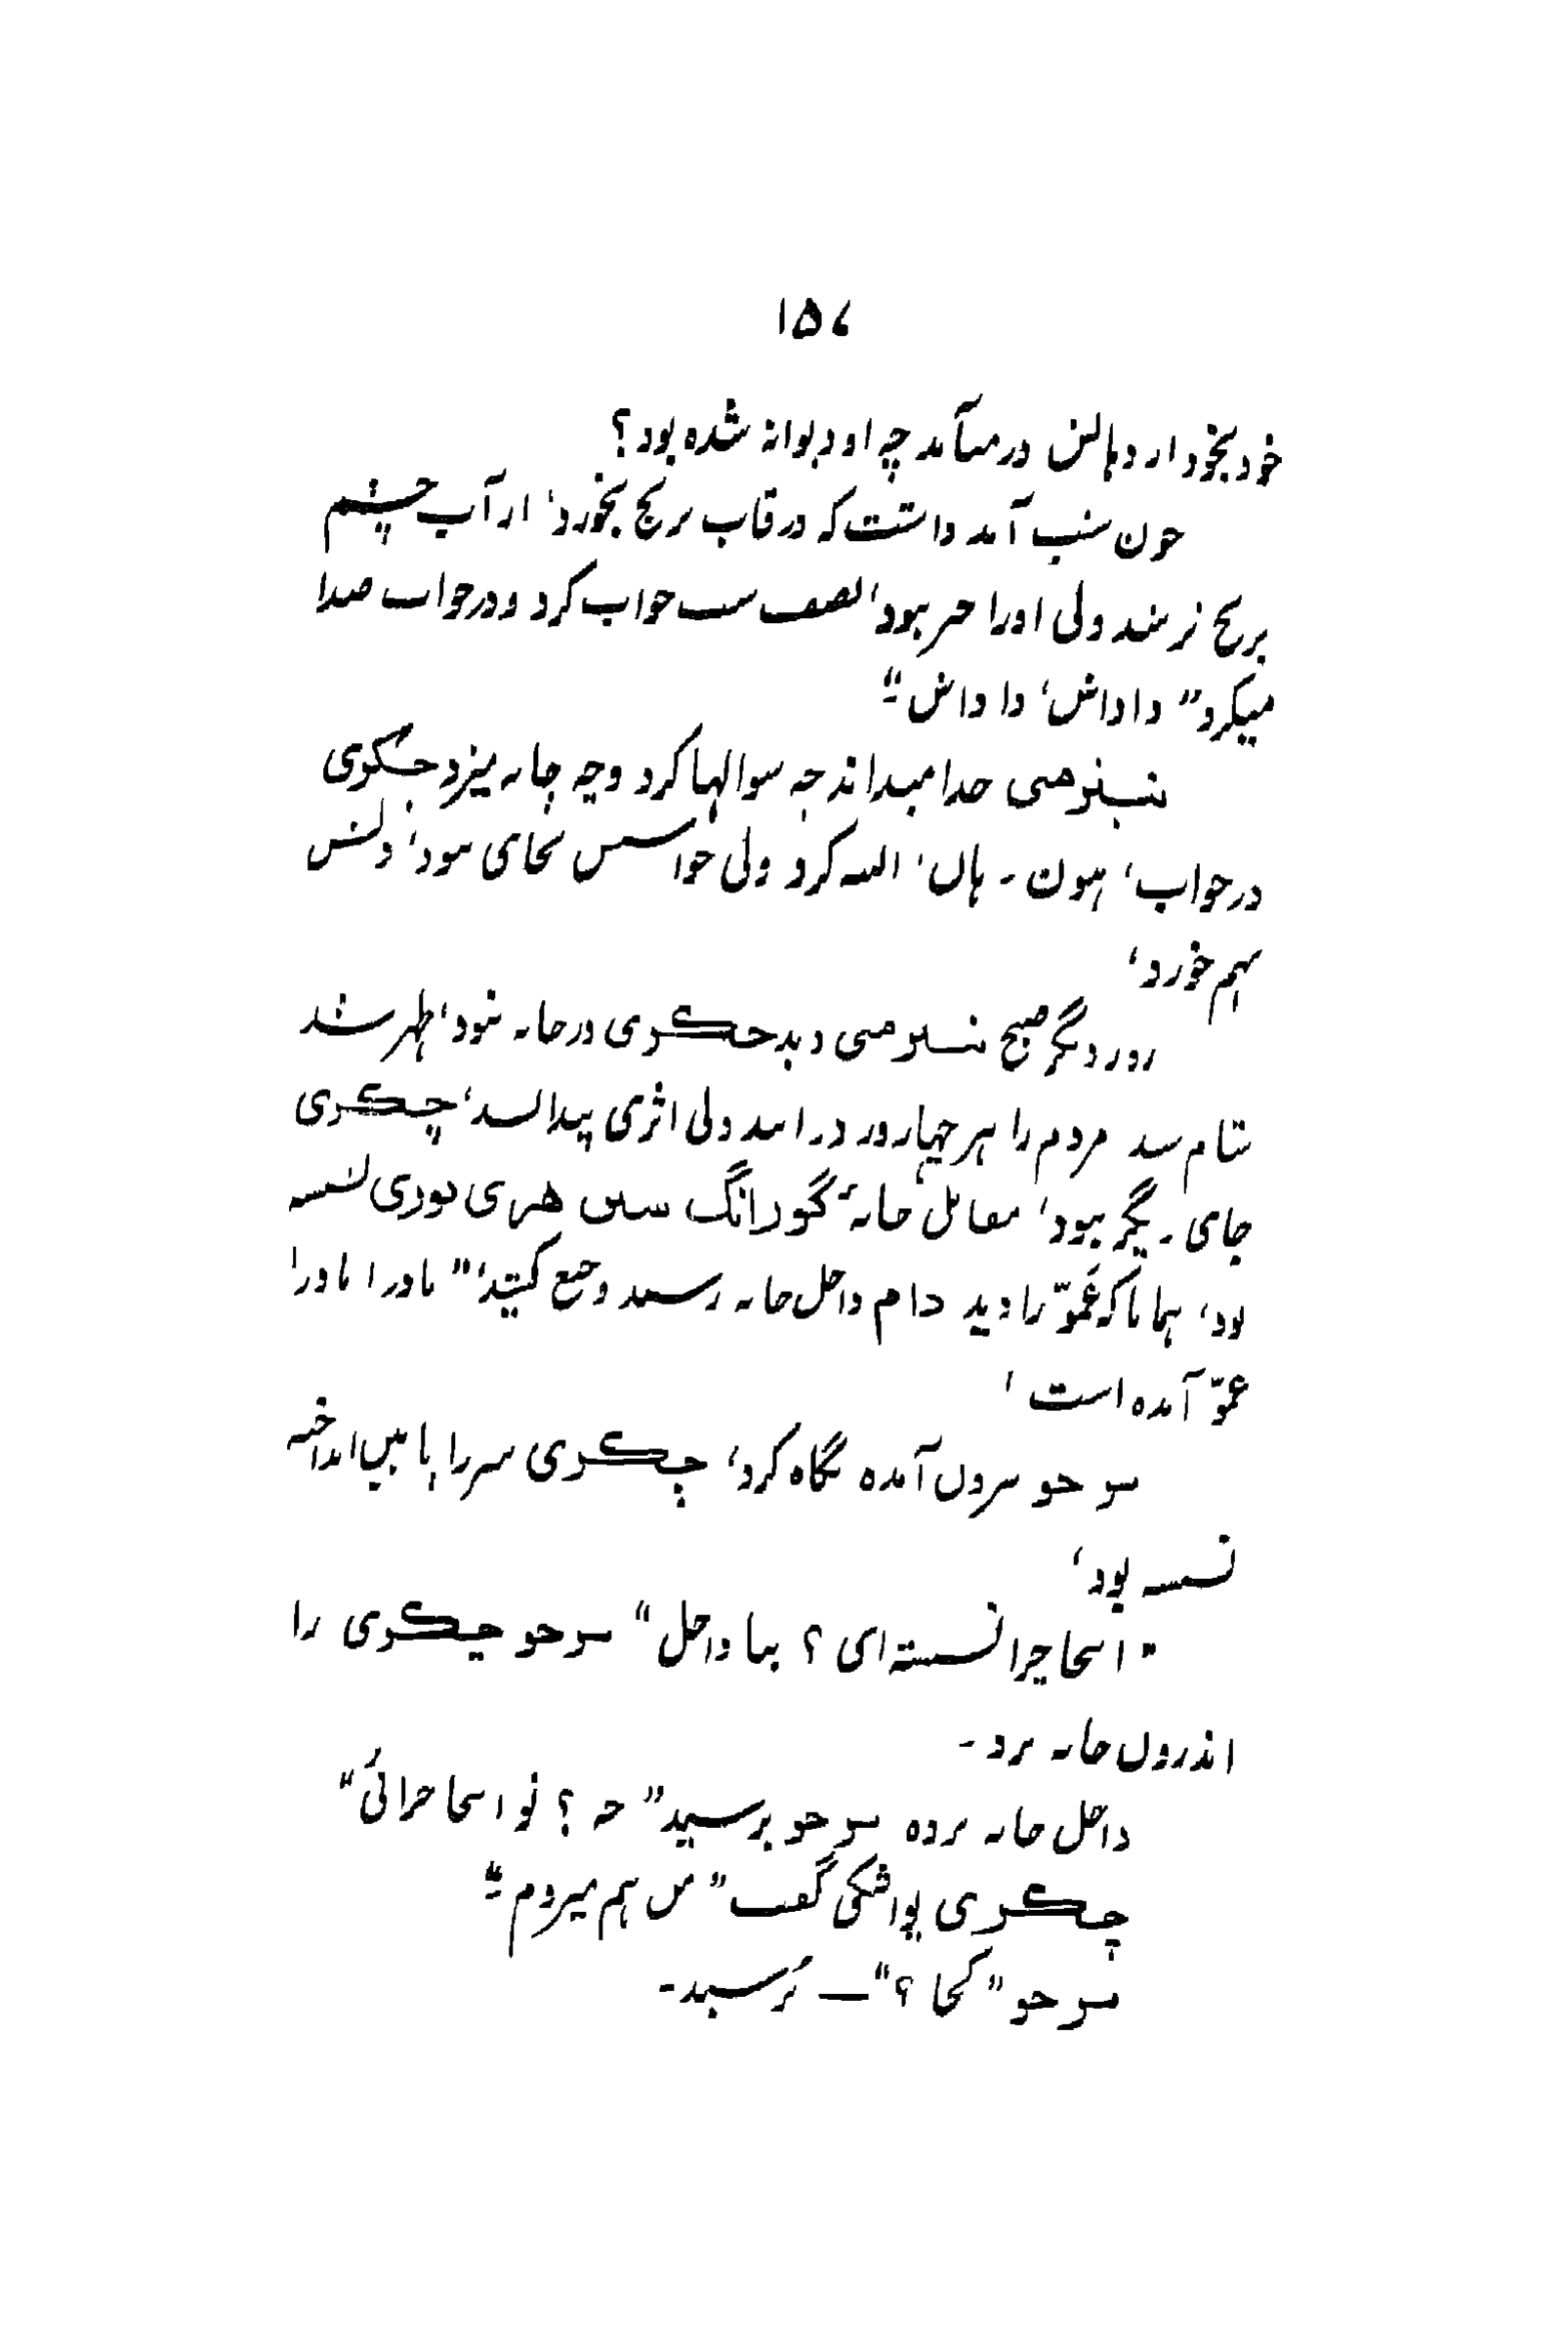 ۱۵۷
خود بخود از دهانش در میآمد چه او دیوانه شده بود؟
چون شب آمد داشت که در قاب برنج بخورد، از آب چشم
برنج تر شد ولی اورا خبر نبود، نصف شب خواب کرد و در خواب صدا
میکرد "داداش، داداش"۔
خدا میداند چه سوالها کرد و چه چانه میزد چکوی
در جواب، هون ۔ هان، البته کرد ولی حواسش بجای نبود، دلش
بهم خورد،
روز دیگر صبح دید چکوی در خانه نبود، ظهر شد
شام شد مردم را هر چهار در ولی اثری پیدا نشد، چکوی
جای دیگر نبود، مقابل خانهٔ گورانگ سین نشسته
بود، همانا که عمّو را دید داخل خانه رسید و جیغ کشید، "مادر! مادر!
عمّو آمده است،
سرجو بیرون آمده نگاه کرد، چکوی سر را پایین انداخته
نشسته بود،
"اینجا چرا نشسته ای؟ بیا داخل" سرجو چکوی را
اندرون خانه برد ۔
داخل خانه برده سرجو پرسید "چه؟ تو اینجا چرائی"
چکوی یواشکی گفت "من هم میروم"۔
سرجو "کجا؟" — پُرسید ۔